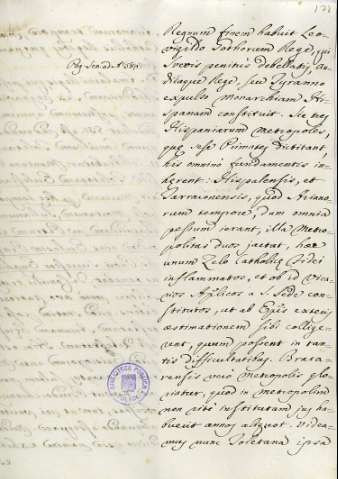 171
Regnum finem habuit Leo-
vigildo Gothorum Rege, qui
Suevis penitus debellatis, Au-
diaque Rege, seu Tyranno
expulso Monarchiam His-
panam constituit. Sic tres
Hispaniarum Metropoles,
quæ sese Primates dictitant,
his omninò fundamentis in-
herent: Hispalensis, et
Tarraconensis, quod Ariano-
rum tempore, dum omnia
pessum irant, illa Metro-
politas duos jactat, hæc
unum Zelo Catholicæ Fidei
inflammatos, et ab id Vica-
rios Aplicos a S. Sede con-
stitutos, et ab Epis exteris
æstimationem sibi collige-
rent, quam possent in tan-
tis difficultatibus. Braca-
rensis verò Metropolis glo-
riatur, quod in metropolim
non ritè institutam jus ha-
buerit annos aliquot. Videa-
mus nunc Toletana ipsa
BIBLIOTECA PUBLICA
TOLEDO